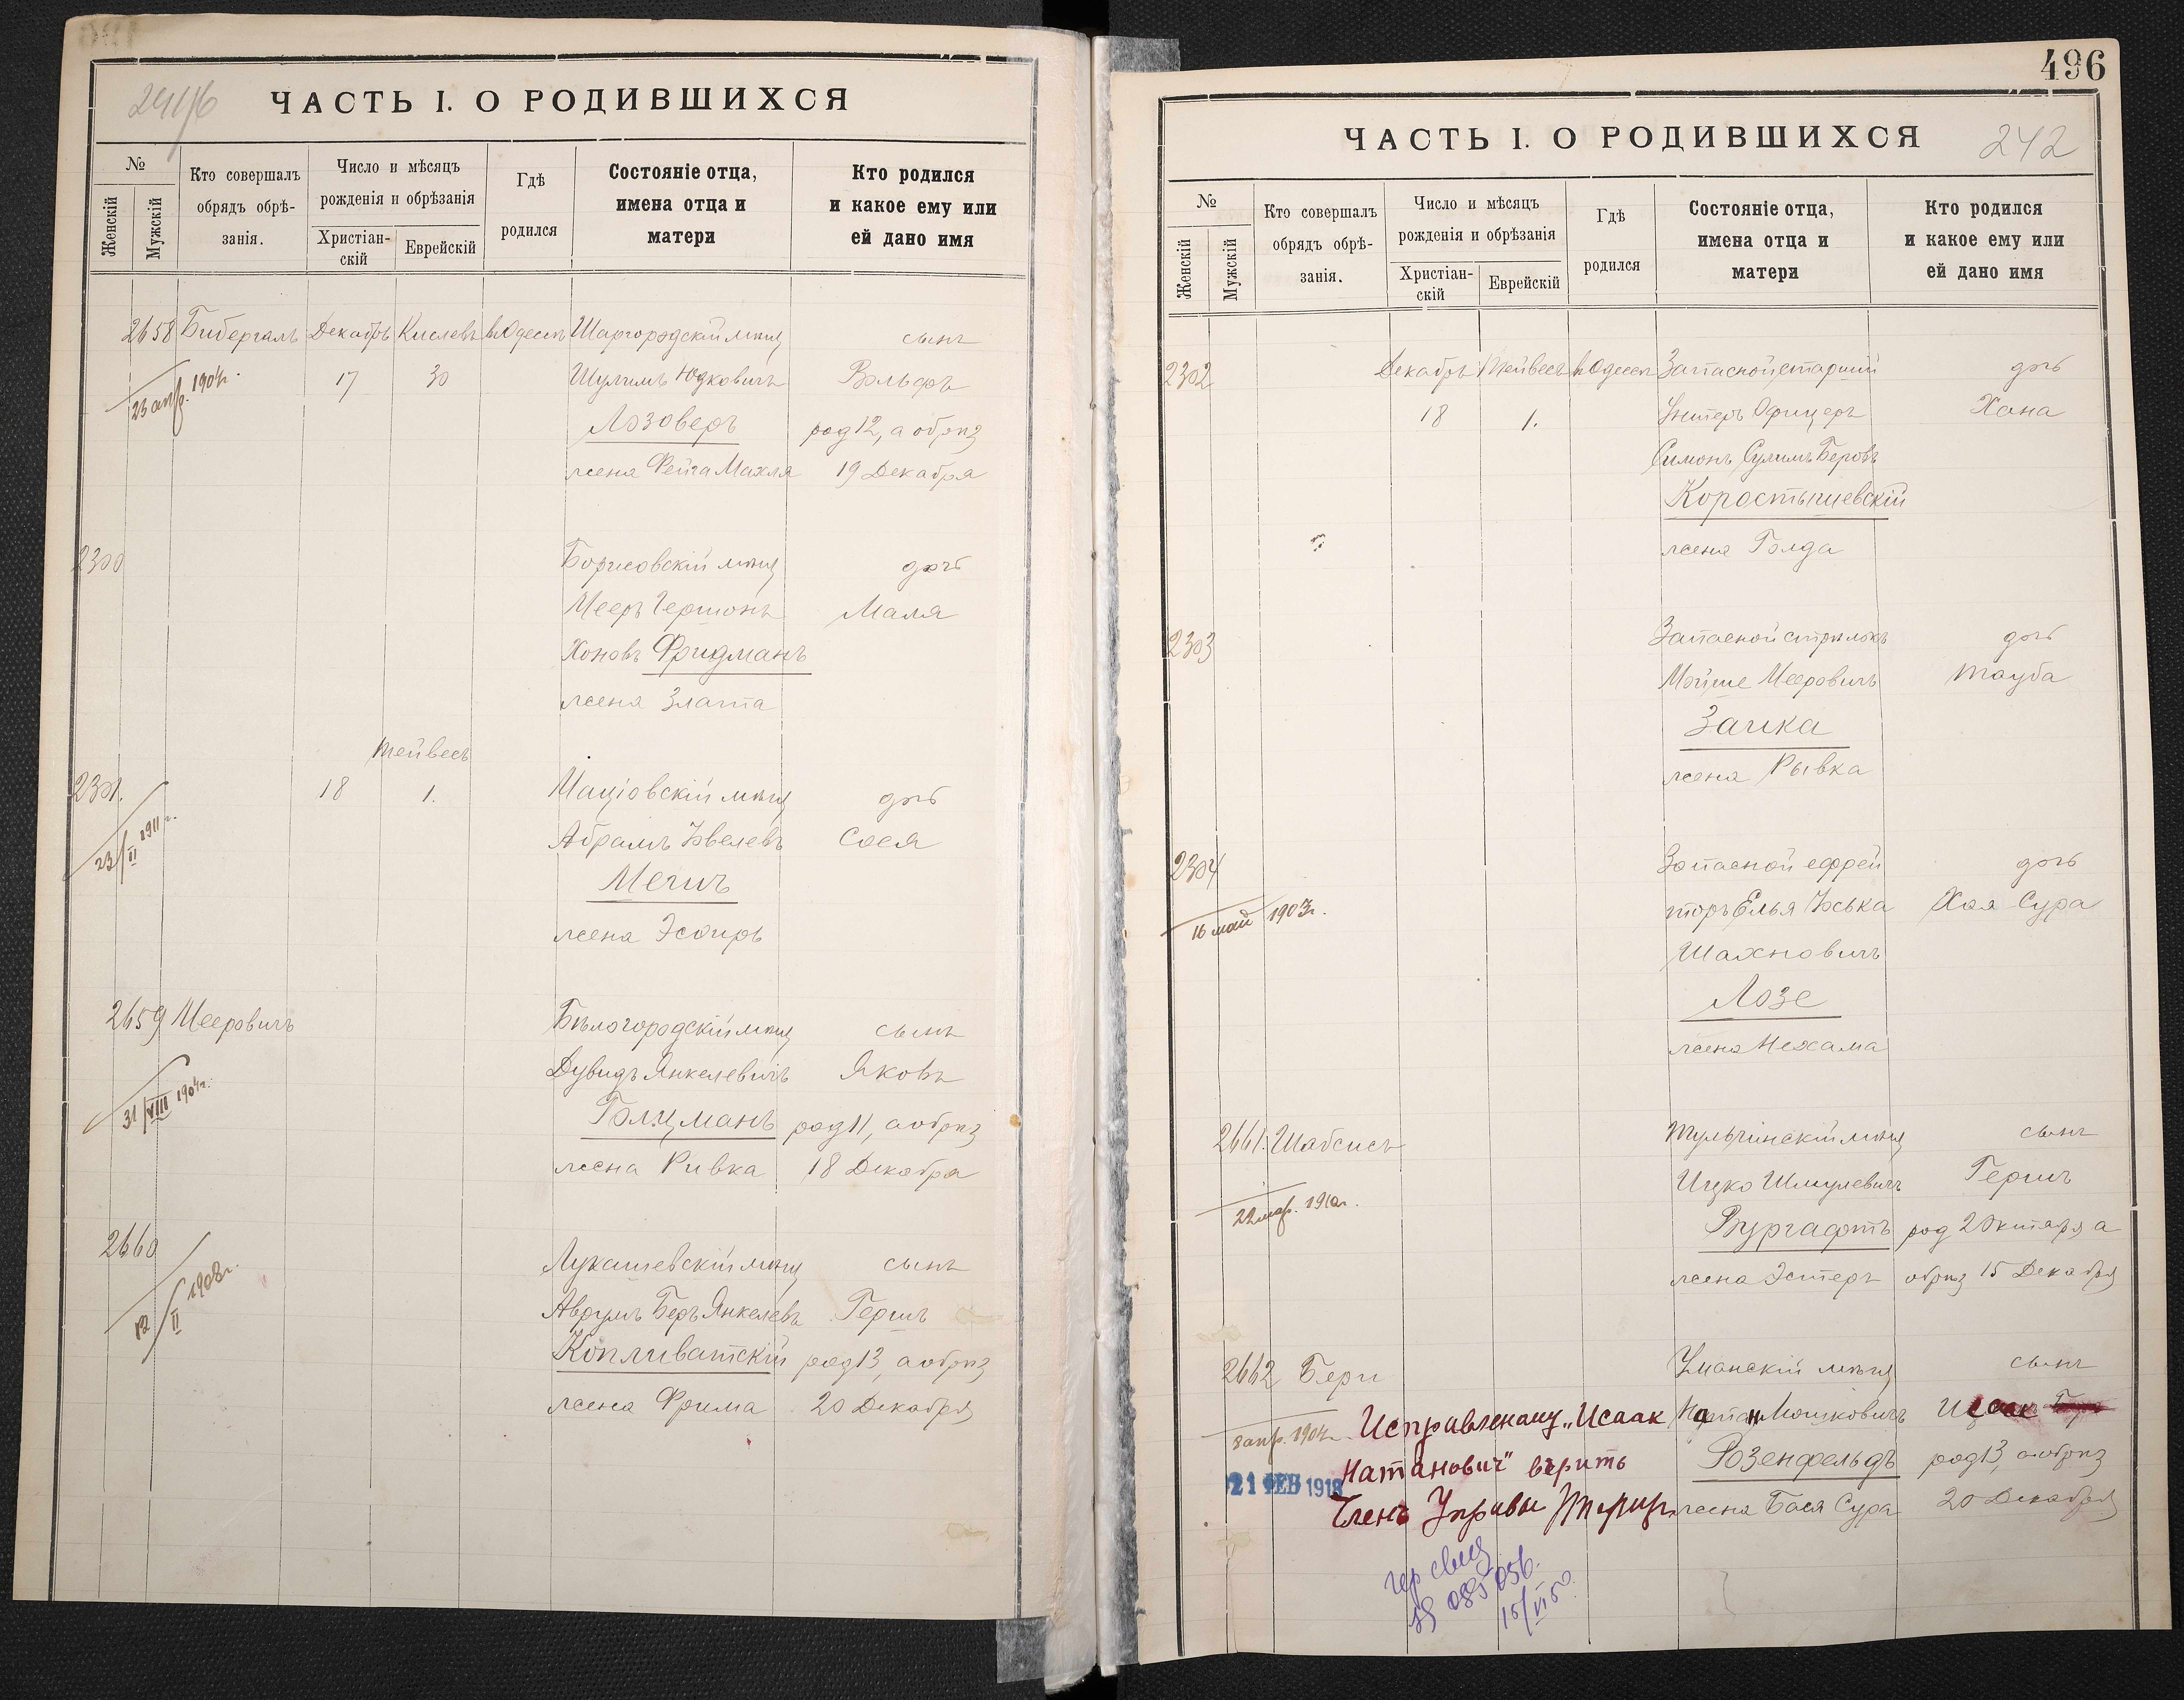 ЧАСТЬ I. О РОДИВШИХСЯ
№
Женскій
Мужскій
Кто совершалъ обрядъ обрѣзанія.
Число и мѣсяцъ рожденія и обрѣзанія
Христіанскій
Еврейскій
Гдѣ родился
Состояніе отца, имена отца и матери
Кто родился и какое ему или ей дано имя
2658 Бибергалъ Декабрь Кислевъ въ Одессѣ Шаргородскій мѣщ сынъ
23 апр. 1904г. 17 30 Шулимъ Юдковичъ Вольфъ
Лозоверъ род 12, а обрѣз
жена Фейга Махля 19 Декабря
2300 Борисовскій мѣщ дочь
Мееръ Гершонъ Маля
Хоновъ Фридманъ
жена Злата
Тейвесъ
2301. 18 1. Маціовскій мѣщ дочь
23/II 1911г. Абрамъ Увелевъ Сося
Мечикъ
жена Эсфирь
2659 Мееровичъ Бѣлогородскій мѣщ сынъ
Дувидъ Янкелевичъ Яковъ
31/VIII 1904г. Голцманъ род 11, а обрѣз
жена Ривка 18 Декабря
2660 Лукашевскій мѣщ сынъ
12/II 1908г. Аврумъ Беръ Янкелевъ Гершъ
Копливатскій род 13, а обрѣз
жена Фрима 20 Декабря
496
ЧАСТЬ I. О РОДИВШИХСЯ 242
№
Женскій
Мужскій
Кто совершалъ обрядъ обрѣзанія.
Число и мѣсяцъ рожденія и обрѣзанія
Христіанскій
Еврейскій
Гдѣ родился
Состояніе отца, имена отца и матери
Кто родился и какое ему или ей дано имя
2302 Декабрь Тейвесъ въ Одессѣ Запасной старший дочь
18 1. Унтеръ Офицеръ Хана
Симонъ Сулимъ Беровъ
Коростышевскій
жена Голда
2303 Запасной стрѣлокъ дочь
Мойше Мееровичъ Тауба
Заика
жена Рывка
2304 Запасной ефрей дочь
16 май 1903г. торъ Елья Уська Хая Сура
Шахновичъ
Лозе
жена Нехама
2661. Шабсисъ Тульчинскій мѣщ сынъ
22 мар. 1910г. Ицко Шмулевичъ Гершъ
Вургафтъ род 2 Октября а
жена Эстеръ обрѣз 15 Декабря
2662 Бери Уманскій мѣщ сынъ
8 апр. 1904г. Исправленому „Исаак Натан Мошковичъ Исаак
Натанович" вѣрить Розенфельдъ род 13, а обрѣз
21 ФЕВ 1918 Членъ Управы жена Бася Сура 20 Декабря